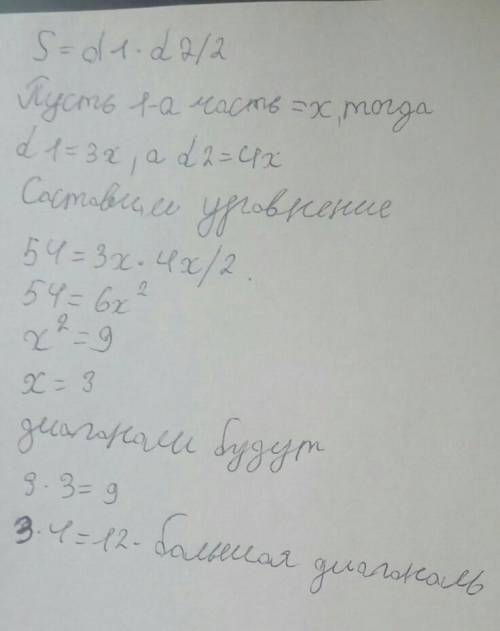 S = d1 · d2/2
Пусть 1-а часть = x, тогда
d1 = 3x, а d2 = 4x
Составим уравнение
54 = 3x · 4x/2.
54 = 6x²
x² = 9
x = 3
диагонали будут
3 · 3 = 9
3 · 4 = 12 - большая диагональ